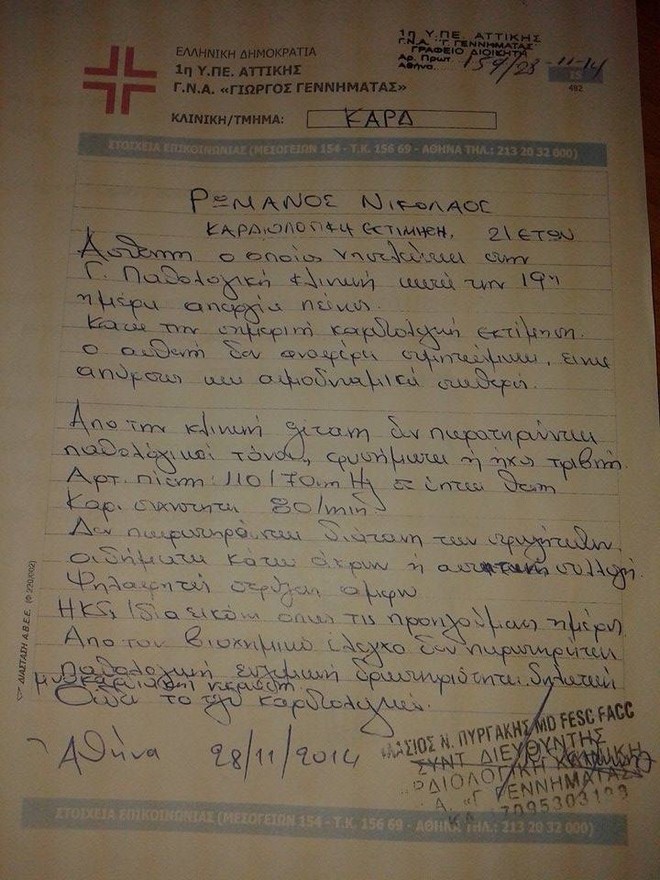 1η Υ.ΠΕ. ΑΤΤΙΚΗΣ
Γ.Ν.Α. "Γ. ΓΕΝΝΗΜΑΤΑΣ"
ΓΡΑΦΕΙΟ ΔΙΟΙΚΗΤΗ
Αρ. Πρωτ. 159/28-11-14
Αθήνα
ΕΛΛΗΝΙΚΗ ΔΗΜΟΚΡΑΤΙΑ
1η Υ.ΠΕ. ΑΤΤΙΚΗΣ
Γ.Ν.Α. «ΓΙΩΡΓΟΣ ΓΕΝΝΗΜΑΤΑΣ»
492
ΚΛΙΝΙΚΗ/ΤΜΗΜΑ: ΚΑΡΔ
ΣΤΟΙΧΕΙΑ ΕΠΙΚΟΙΝΩΝΙΑΣ (ΜΕΣΟΓΕΙΩΝ 154 - Τ.Κ. 156 69 - ΑΘΗΝΑ ΤΗΛ.: 213 20 32 000)
ΡΩΜΑΝΟΣ ΝΙΚΟΛΑΟΣ
ΚΑΡΔΙΟΛΟΓΙΚΗ ΕΚΤΙΜΗΣΗ. 21 ΕΤΩΝ
Ασθενή ο οποίος νοσηλεύεται στην
Γ. Παθολογική κλινική κατά την 19η
ημέρα απεργία πείνας.
Κατά την σημερινή καρδιολογική εκτίμηση
ο ασθενή δεν αναφέρει συμπτώματα, είναι
απύρετος και αιμοδυναμικά σταθερή.
Απο την κλινική εξέταση δεν παρατηρούνται
παθολογικοί τόνοι, φυσήματα ή ήχοι τριβής.
Αρτ. πίεση: 110/70 mm Hg σε ύπτια θέση
Καρ. συχνότητα 80/min
Δεν παρατηρείται διάταση των σφαγίτιδων
οιδήματα κάτω άκρων ή ασκιτική συλλογή.
Ψηλαφητές σφύξεις αμφω
ΗΚΓ: Ίδια εικόνα οπως τις προηγούμενες ημέρες
Απο τον βιοχημικό έλεγχο δεν παρατηρείται
παθολογική ενζυμική δραστηριότητα δηλωτική
μυοκαρδιακή νέκρωση.
το καρδιολογικό.
Αθήνα 28/11/2014
ΑΣΙΟΣ Ν. ΠΥΡΓΑΚΗΣ MD FESC FACC
ΣΥΝΤ. ΔΙΕΥΘΥΝΤΗΣ
ΡΔΙΟΛΟΓΙΚΗ ΚΛΙΝΙΚΗ
Α. "Γ. ΓΕΝΝΗΜΑΤΑΣ"
ΣΤΟΙΧΕΙΑ ΕΠΙΚΟΙΝΩΝΙΑΣ (ΜΕΣΟΓΕΙΩΝ 154 - Τ.Κ. 156 69 - ΑΘΗΝΑ ΤΗΛ.: 213 20 32 000)
ΔΙΑΣΤΑΣΗ Α.Β.Ε.Ε.